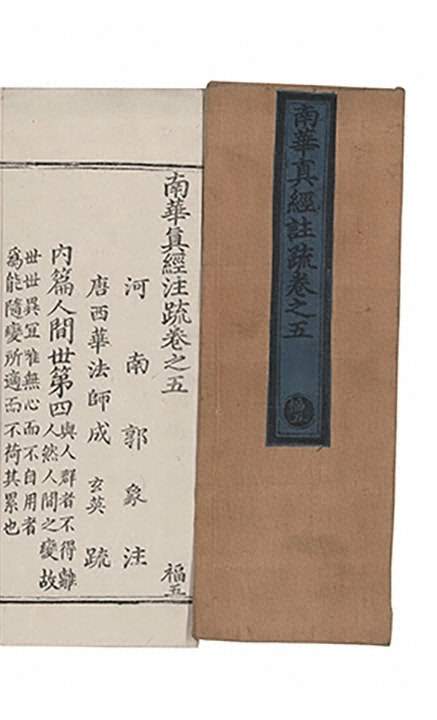 南華真經註疏卷之五
福五
南華真經注疏卷之五
福五
河南郭象注
唐西華法師成玄英疏
內篇人間世第四
與人群者不得離
人然人間之變故
世世異宜唯無心而不自用者
爲能隨變所適而不荷其累也